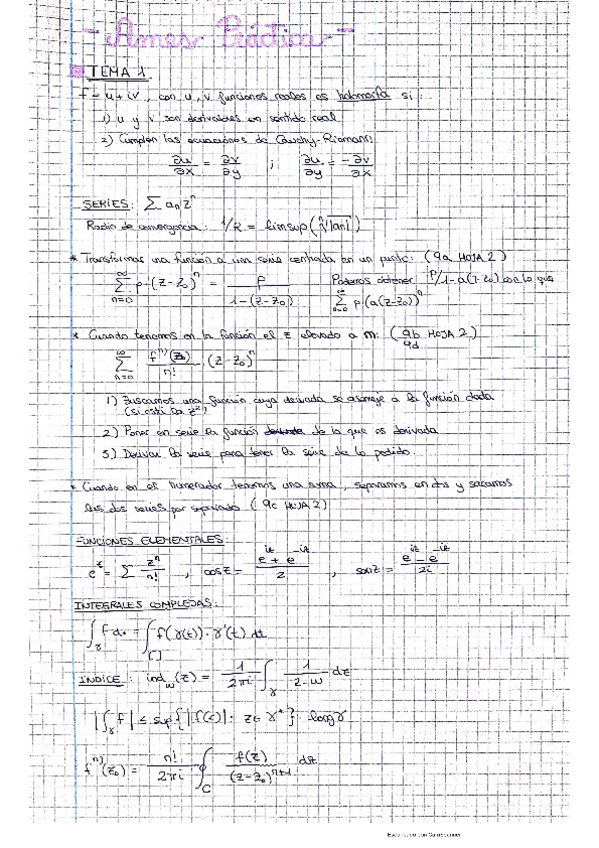 - Ames Práctica -
TEMA 1.
f = u + iv, con u, v funciones reales es holomorfa si:
1) u y v son derivables en sentido real
2) Cumplen las ecuaciones de Cauchy-Riemann
∂u/∂x = ∂v/∂y ; ∂u/∂y = -∂v/∂x
SERIES: ∑ aₙzⁿ
Radio de convergencia: 1/R = lim sup(ⁿ√|an|)
* Transformar una función a una serie centrada en un punto: (9a HOJA 2)
∞∑n=0 p·(z-z₀)ⁿ = p/1-(z-z₀) Podemos obtener p/1-a(z-z₀) con lo que ∞∑n=0 p·(a(z-z₀))ⁿ
* Cuando tenemos en la función el z elevado a m: (9b HOJA 2) 9d
∞∑n=0 fⁿ⁾(z₀)/n! · (z-z₀)ⁿ
1) Buscamos una función cuya derivada se asemeje a la función dada
(si está la z²)
2) Poner en serie la función de la que es derivada
3) Derivar la serie para tener la serie de lo pedido.
* Cuando en el numerador tenemos una suma, separamos en dos y sacamos
las dos series por separado (9c HOJA 2)
FUNCIONES ELEMENTALES:
eᶻ = ∑ zⁿ/n! , cos z = (e^iz + e^-iz)/2 , sen z = (e^iz - e^-iz)/2i
INTEGRALES COMPLEJAS:
∫γ f dz = ∫[ ] f(γ(t))·γ'(t) dt
ÍNDICE: ind_w(z) = 1/2πi ∫γ 1/z-w dz
|∫γ f| ≤ sup{|f(z)| : z∈γ*} · long γ
fⁿ⁾(z₀) = n!/2πi ∮C f(z)/(z-z₀)ⁿ⁺¹ dz
Escaneado con CamScanner